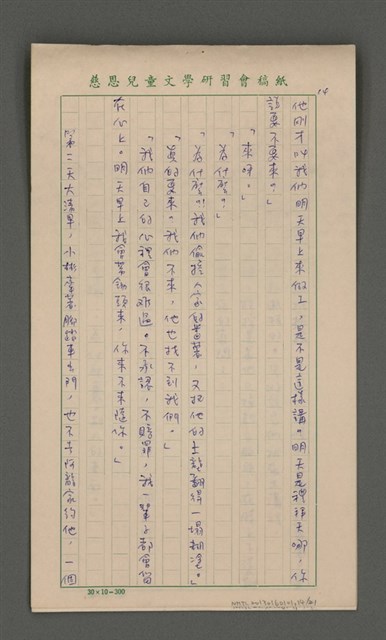 慈恩兒童文學研習會稿紙
14
他剛才叫我們明天早上來做工，是不是這樣講。明天是禮拜天哪，你
說要不要來？」
「來呀。」
「為什麼？」
「為什麼？我們偷挖人家的蕃薯，又把他的土龍翻得一塌糊塗。」
「真的要來。我們不來，他也找不到我們。」
「我們自己的心裡會很難過。不承認，不賠罪，我一輩子都會留
在心上。明天早上我會荷鋤頭來，你來不來隨你。」
第二天大清早，小彬牽著腳踏車出門，也不去阿龍家約他，一個
30×10=300